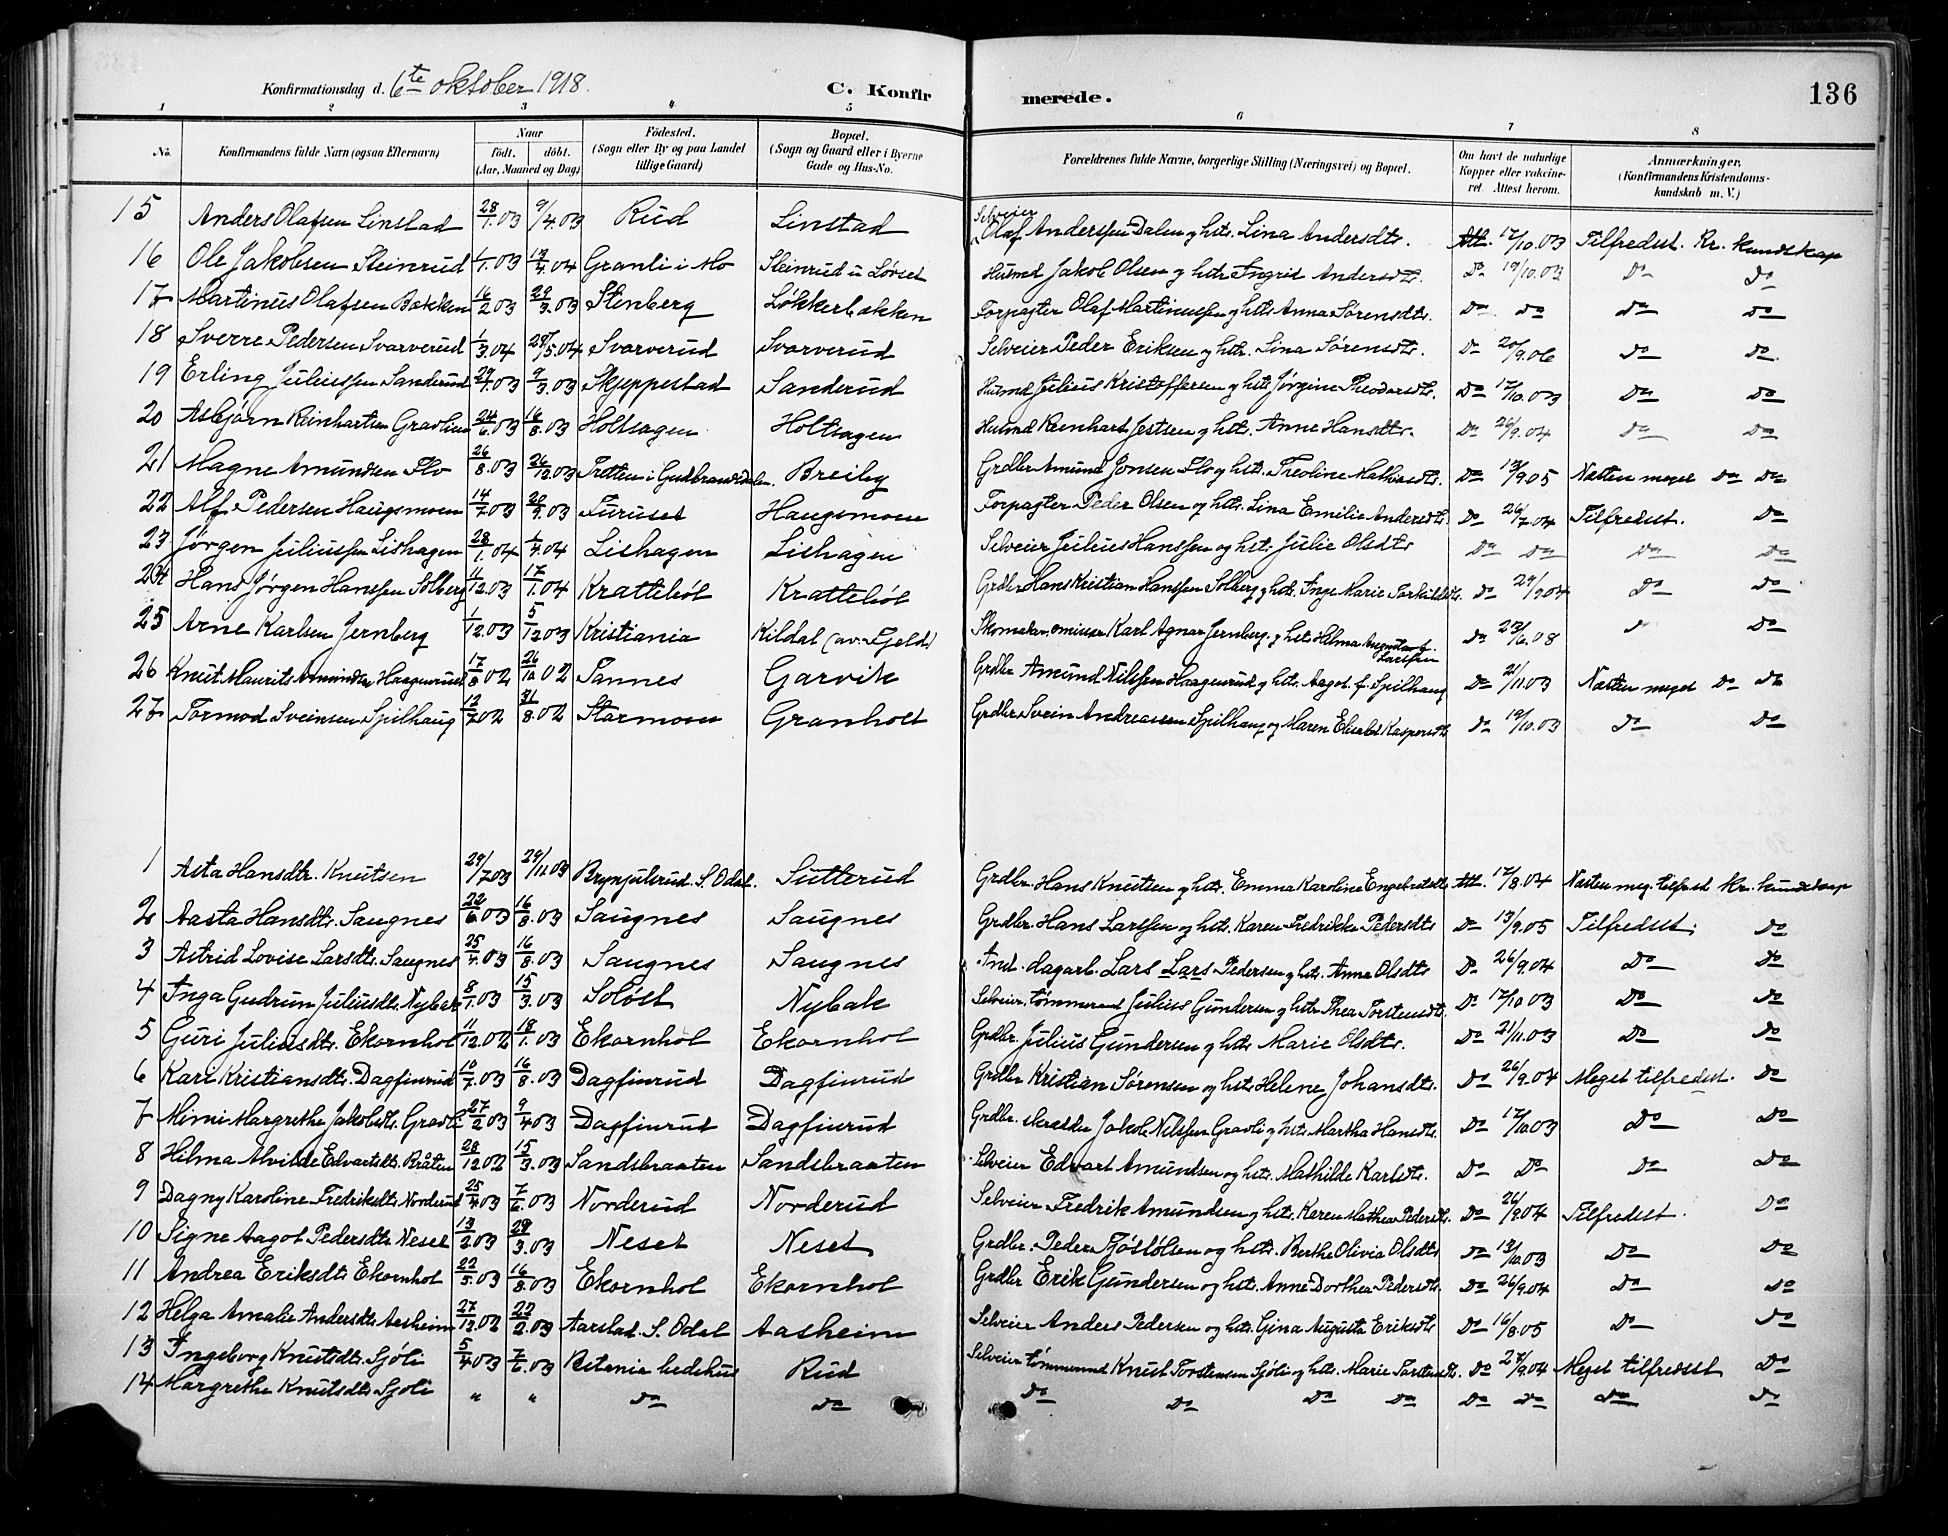 Konfirmationsdag d. 6te oktober 1918. C. Konfirmerede. 136
1 2 3 4 5 6 7 8
No. Konfirmandens fulde Navn (ogsaa Efternavn) Naar født. døbt. (Aar, Maaned og Dag) Fødested. (Sogn eller By og paa Landet tillige Gaard) Bopæl. (Sogn og Gaard eller i Byerne Gade og Hus-No. Forældrenes fulde Navne, borgerlige Stilling (Næringsvei) og Bopæl. Om havt de naturlige Kopper eller vakcineret. Attest herom. Anmærkninger, (Konfirmandens Kristendomskundskab m. V.)
15 Anders Olafsen Linstad 28/1.03 9/4.03 Rud Linstad Selveier Olaf Anderssen Dalen og hst. Lina Andersdtr. Att. 17/10.03 Tilfredsst. Kr. kundskap
16 Ole Jakobsen Steinrud 1/1.03 17/4.04 Granli i Mo Steinrud u. Lørset Husmd Jakob Olsen og hst. Ingrid Andersdtr. Do 19/10.03 Do Do
17 Martinus Olafsen Bakken 16/2 03 29/3.03 Stenberg Løkkerbakken Forpagter Olaf Martinussen og hst. Anna Sørensdtr. Do Do Do Do
18 Sverre Pedersen Svarverud 1/3.04 29/5.04 Svarverud Svarverud Selveier Peder Eriksen og hst. Lina Sørensdtr. Do 20/9.06 Do Do
19 Erling Juliussen Sanderud 29/1.03 9/3.03 Skjeppestad Sanderud Husmd Julius Kristoffersen og hst. Jørgine Theodorsdtr. Do 17/10.03 Do Do
20 Asbjørn Reinhartsen Gravlien 24/6.03 16/8.03 Holtsagen Holtsagen Husmd Reinhart Jestsen og hst. Anne Hansdtr. Do 26/9.04 Do Do
21 Magne Amundsen Flo 26/8.03 26/12.03 Tretten i Gudbrandsdalen. Breiby Grdbr Amund Jonsen Flo og hst. Theoline Mathisdtr. Do 13/9.05 Næsten meget Do Do
22 Alf Pedersen Haugsmoen 14/7.03 20/9.03 Furuset Haugsmoen Forpagter Peder Olsen og hst. Lina Emilie Andersdtr. Do 26/7.04 Tilfredsst. Do
23 Jørgen Juliussen Lishagen 28/1.04 1/4.04 Lishagen Lishagen Selveier Julius Hanssen og hst. Julie Olsdtr Do Do Do Do
24 Hans Jørgen Hanssen Solberg 11/12.03 17/1.04 Krattebøl Krattebøl Grdbr Hans Kristian Hanssen Solberg og hst. Inge Marie Torkildsdtr. Do 29/9.04 Do Do
25 Arne Karlsen Jernberg 1/12.03 5/12 03 Kristiania Kildal (av. Fjeld) Skomaker Karl Agnar Jernberg og hst. Hilma Augusta f. Larssen Do 23/6.08 Do
26 Knut Maurits Amundsen Haagenrud 17/8 02 26/10 02 Tannes Garvik Grdbr. Amund Nilssen Haagenrud og hst. Aagot f. Spilhaug Do 21/11.03 Næsten meget Do Do
27 Tormod Sveinsen Spilhaug 12/7 02 31/8.02 Starmoen Granholt Grdbr. Svein Andreassen Spilhaug og Maren Elisabet Kaspersdtr Do 19/10.03 Do Do
1 Asta Hansdtr. Knutsen 29/7 03 29/11.03 Brynjulsrud. S. Odal. Sutterud Grdbr. Hans Knutsen og hst. Emma Karoline Engebretsdtr Att. 17/8.04 Næsten meg. tilfred Kr. kundskap
2 Aasta Hansdtr. Saugnes 22/6.03 16/8.03 Saugnes Saugnes Grdbr. Hans Larssen og hst. Karen Fredrikke Pedersdtr Do 13/9.05 Tilfredsst. Do
3 Astrid Lovise Larsdtr. Saugnes 25/4.03 16/8.03 Saugnes Saugnes Ind. dagarb. Lars Lars Pedersen og hst. Anna Olsdtr Do 26/9.04 Do Do
4 Inga Gudrun Juliusdtr. Nybak 8/1.03 15/3.03 Soløst Nybak Selveier. tømmermd Julius Gundersen og hst. Thea Torstensdtr. Do 17/10 03 Do Do
5 Guri Juliusdtr. Ekornhol 11/12.02 18/1.03 Ekornhol Ekornhol Grdbr. Julius Gundersen og hst. Marie Olsdtr. Do 21/11.03 Do Do
6 Kari Kristiansdtr. Dagfinrud 10/7.03 16/8.03 Dagfinrud Dagfinrud Grdbr Kristian Sørensen og hst. Helene Johansdtr. Do 26/9.04 Meget tilfredsst. Do
7 Mimi Margrethe Jakobsdtr. Gravli 27/2 03 9/4 03 Dagfinrud Dagfinrud Grdbr. skrædder Jakob Nilssen Gravli og hst. Martha Hansdtr. Do 17/10.03 Do Do
8 Hilma Alvilde Edvartsdtr. Bråten 28/12 02 15/3.03 Sandsbraaten Sandsbraaten Selveier Edvart Amundsen og hst. Mathilde Karlsdtr. Do Do Do Do
9 Dagny Karoline Fredriksdtr. Norderud 25/4 03 7/6.03 Norderud Norderud Selveier Fredrik Amundsen og hst. Karen Mathea Pedersdtr. Do 26/9.04 Tilfredsst. Do
10 Signe Aagot Pedersdtr. Neset 13/2.03 29/3.03 Neset Neset Grdbr. Peder Tjøstølsen og hst. Berthe Olivia Olsdtr Do 13/10.03 Do Do
11 Andrea Eriksdtr. Ekornhol 22/5.03 16/8.03 Ekornhol Ekornhol Grdbr Erik Gundersen og hst. Anne Dorthea Pedersdtr. Do 26/9.04 Do Do
12 Helga Amalie Andersdtr. Aasheim 27/12.02 22/2.03 Aarstad. S. Odal Aasheim Selveier Anders Pedersen og hst. Gina Augusta Eriksdtr Do 16/8.05 Do Do
13 Ingeborg Knutsdtr. Sjøli 5/4 03 7/6.03 Betania bedehus Rud Selveier tømmermd Knut Torstensen Sjøli og hst. Marie Torstensdtr. Do 27/9.04 Meget tilfredsst Do
14 Margrethe Knutsdtr. Sjøli " " Do Do Do Do Do Do Do Do Do Do